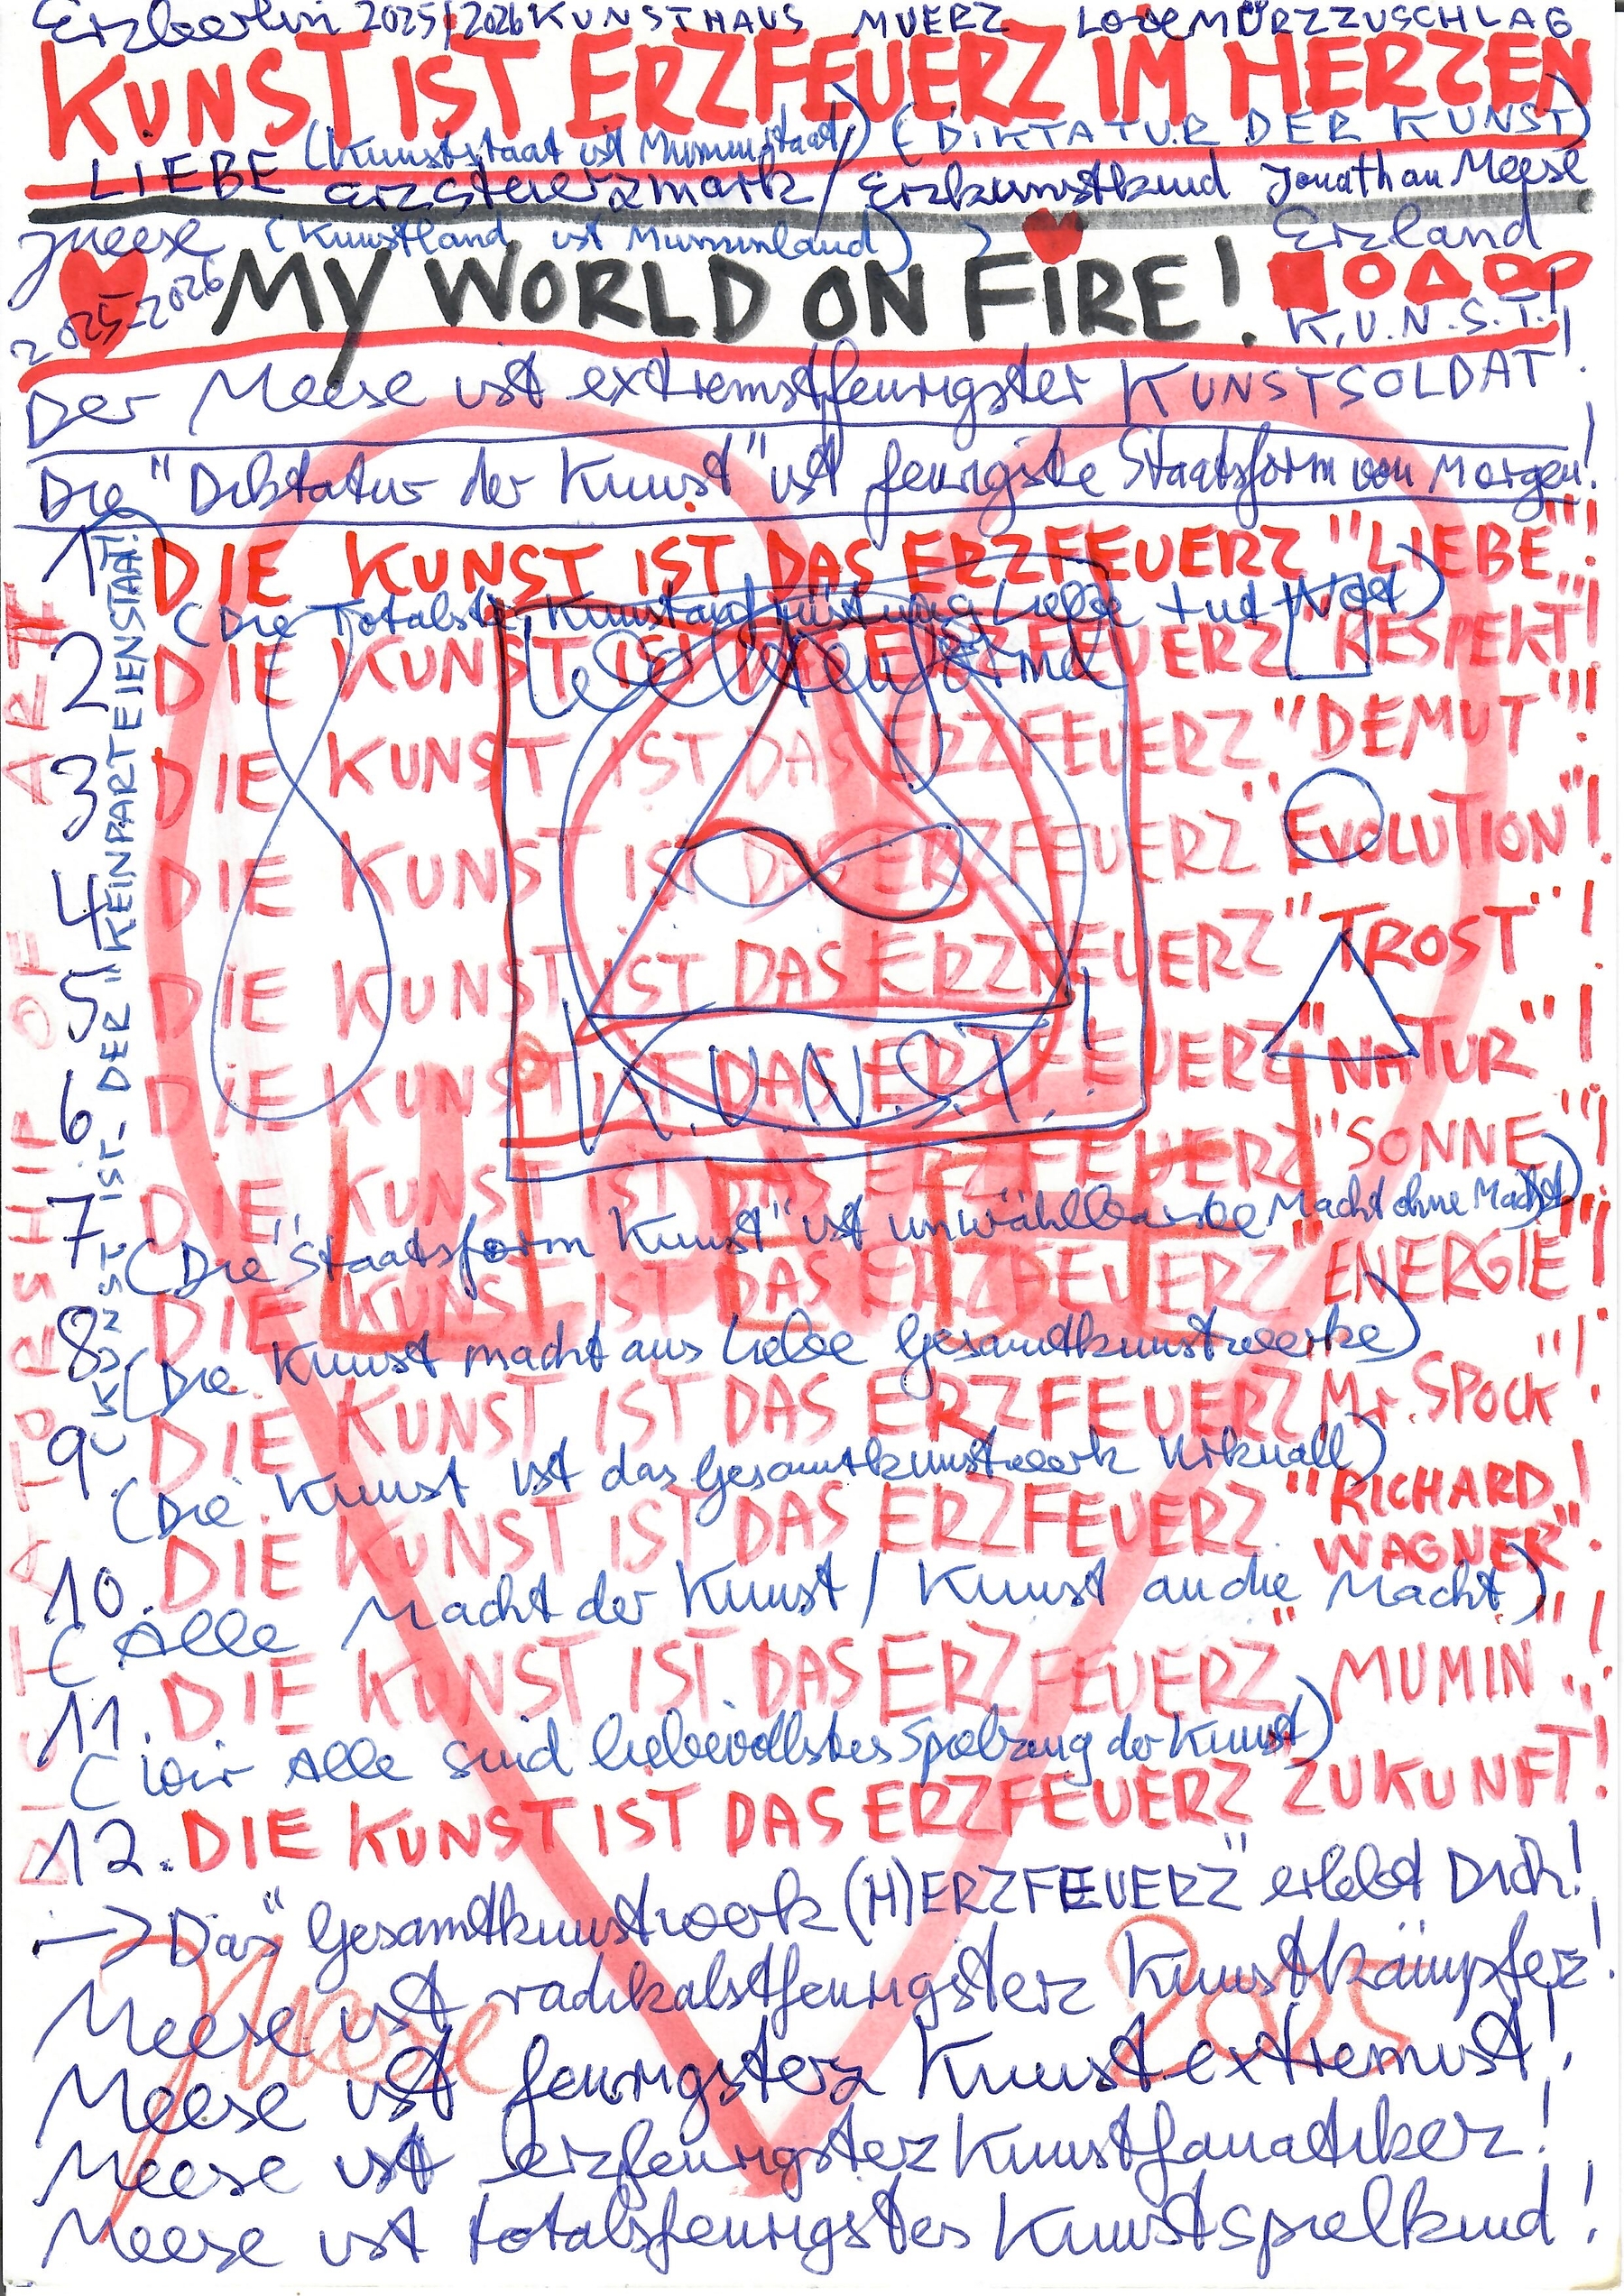 Erzberlin 2025/2026 KUNSTHAUS MUERZ LODEMÜRZZUSCHLAG
KUNST IST ERZFEUERZ IM HERZEN
(Kunststaat ist Muminstaat) (DIKTATUR DER KUNST)
LIEBE Erzsteierzmark / Erzkunstkind Jonathan Meese
JMeese (Kunstland ist Muminland) Erzland
2025-2026 MY WORLD ON FIRE! K.U.N.S.T.!
Der Meese ist extremstfeurigster KUNSTSOLDAT!
Die "Diktatur der Kunst" ist feurigste Staatsform von Morgen!
1. DIE KUNST IST DAS ERZFEUERZ "LIEBE"!
(Die Totalste Kunstaufrüstung Liebe tut Not)
2. DIE KUNST IST DAS ERZFEUERZ "RESPEKT"!
3. DIE KUNST IST DAS ERZFEUERZ "DEMUT"!
4. DIE KUNST IST DAS ERZFEUERZ "EVOLUTION"!
5. DIE KUNST IST DAS ERZFEUERZ "TROST"!
6. DIE KUNST IST DAS ERZFEUERZ "NATUR"!
K.U.N.S.T.!
7. DIE KUNST IST DAS ERZFEUERZ "SONNE"!
(Die "Staatsform Kunst" ist unwählbarste Macht ohne Macht)
8. DIE KUNST IST DAS ERZFEUERZ "ENERGIE"!
LOVE
(Die Kunst macht aus Liebe Gesamtkunstwerke)
9. DIE KUNST IST DAS ERZFEUERZ "Mr. SPOCK"!
(Die Kunst ist das Gesamtkunstwerk Urknall)
10. DIE KUNST IST DAS ERZFEUERZ "RICHARD WAGNER"!
(Alle Macht der Kunst / Kunst an die Macht)
11. DIE KUNST IST DAS ERZFEUERZ "MUMIN"!
(Wir Alle sind liebevollstes Spielzeug der Kunst)
12. DIE KUNST IST DAS ERZFEUERZ "ZUKUNFT"!
→ Das "Gesamtkunstwerk (H)ERZFEUERZ" erlebt Dich!
Meese ist radikalstfeurigsterz Kunstkämpferz!
Meese ist feurigsterz Kunstextremist!
Meese ist erzfeurigsterz Kunstfanatikerz!
Meese ist totalsfeurigstes Kunstspielkind!
JMeese 2025
DICTATORSHIP OF ART
KUNST IST DER "KEINPARTEIENSTAAT!"